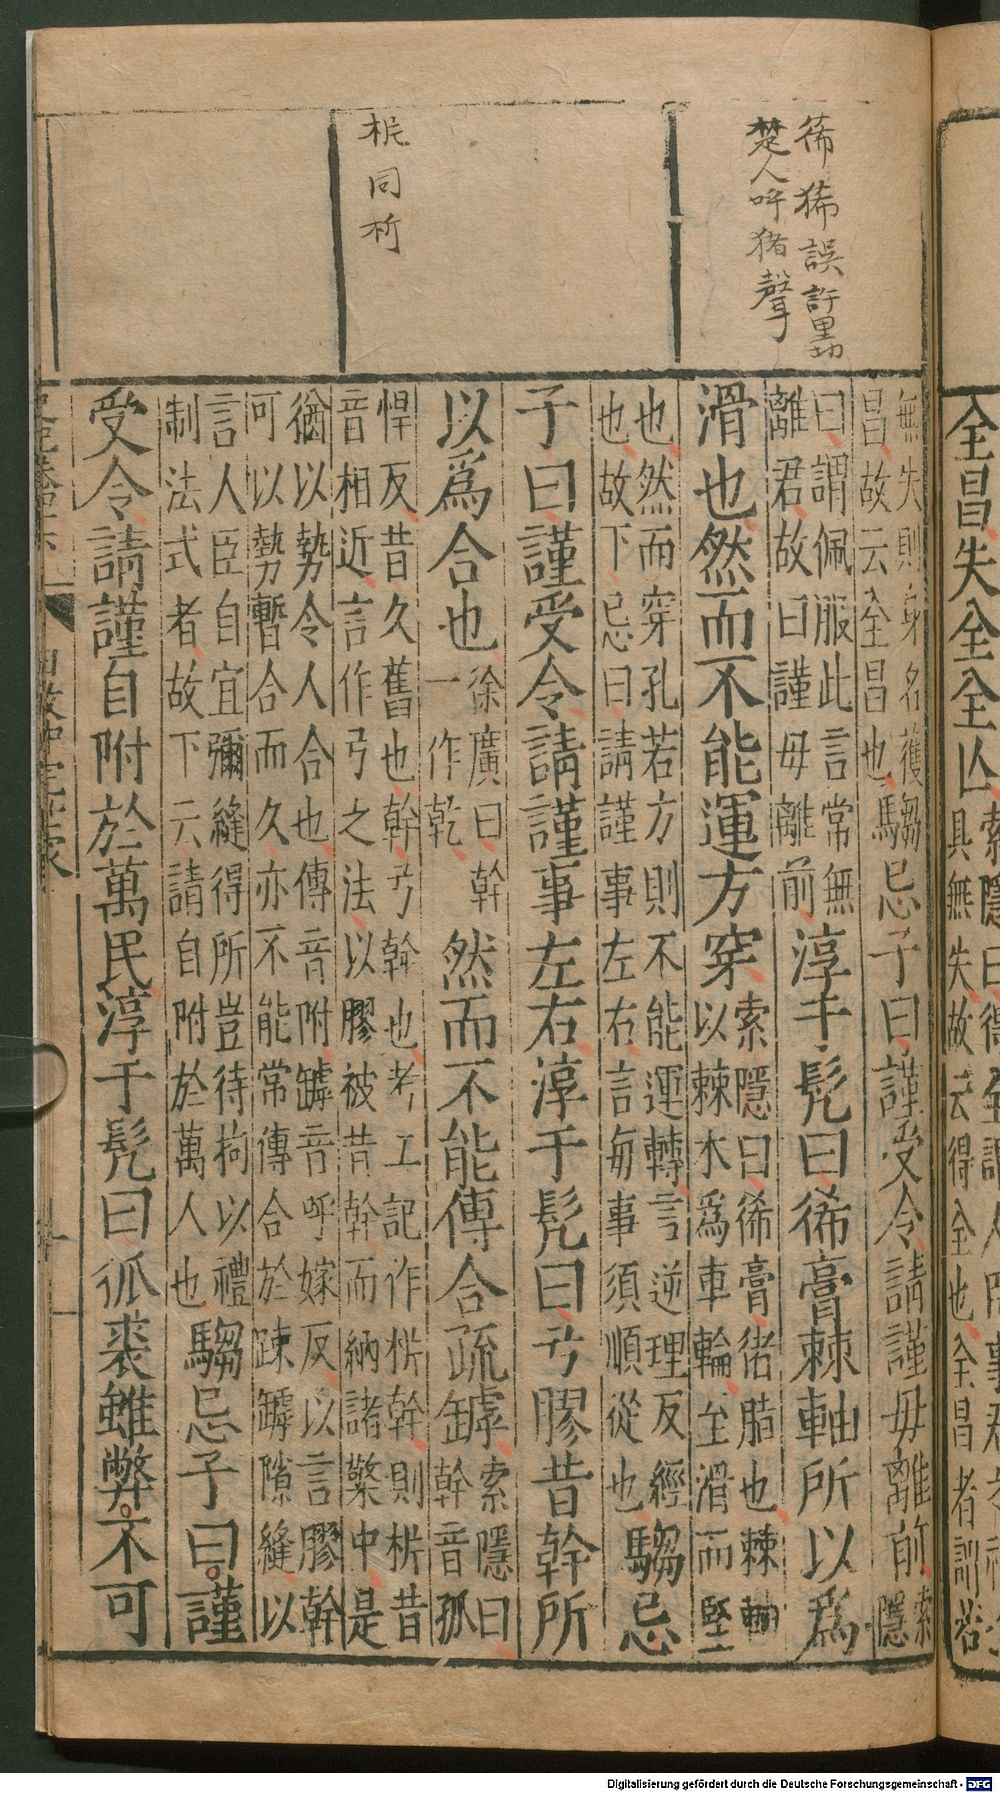 全昌失全全亾
索隱曰得全謂人臣事君之
具無失故云得全也全昌者謂若
狶狶誤許里切
楚人呼猪聲
㭊同析
無失則身名獲
昌故云全昌也
騶忌子曰謹受令請謹毋離前
索
隱
曰謂佩服此言常無
離君故曰謹毋離前
淳于髡曰狶膏棘軸所以爲
滑也然而不能運方穿
索隱曰狶膏猪脂也棘軸
以棘木爲車輪至滑而堅
也然而穿孔若方則不能運轉言逆理反經
也故下忌曰請謹事左右言每事須順從也
騶忌
子曰謹受令請謹事左右淳于髡曰弓膠昔幹所
以爲合也
徐廣曰幹
一作乾
然而不能傅合疏罅
索隱曰
幹音孤
悍反昔久舊也幹弓幹也考工記作㭊幹則㭊昔
音相近言作弓之法以膠被昔幹而納諸檠中是
猶以勢令人合也傅音附罅音呼嫁反以言膠幹
可以勢暫合而久亦不能常傅合於踈罅隙縫以
言人臣自宜彌縫得所豈待拘以禮
制法式者故下云請自附於萬人也
騶忌子曰謹
受令請謹自附於萬民淳于髡曰狐裘雖弊不可
田敬仲完世家
十一
Digitalisierung gefördert durch die Deutsche Forschungsgemeinschaft - DFG